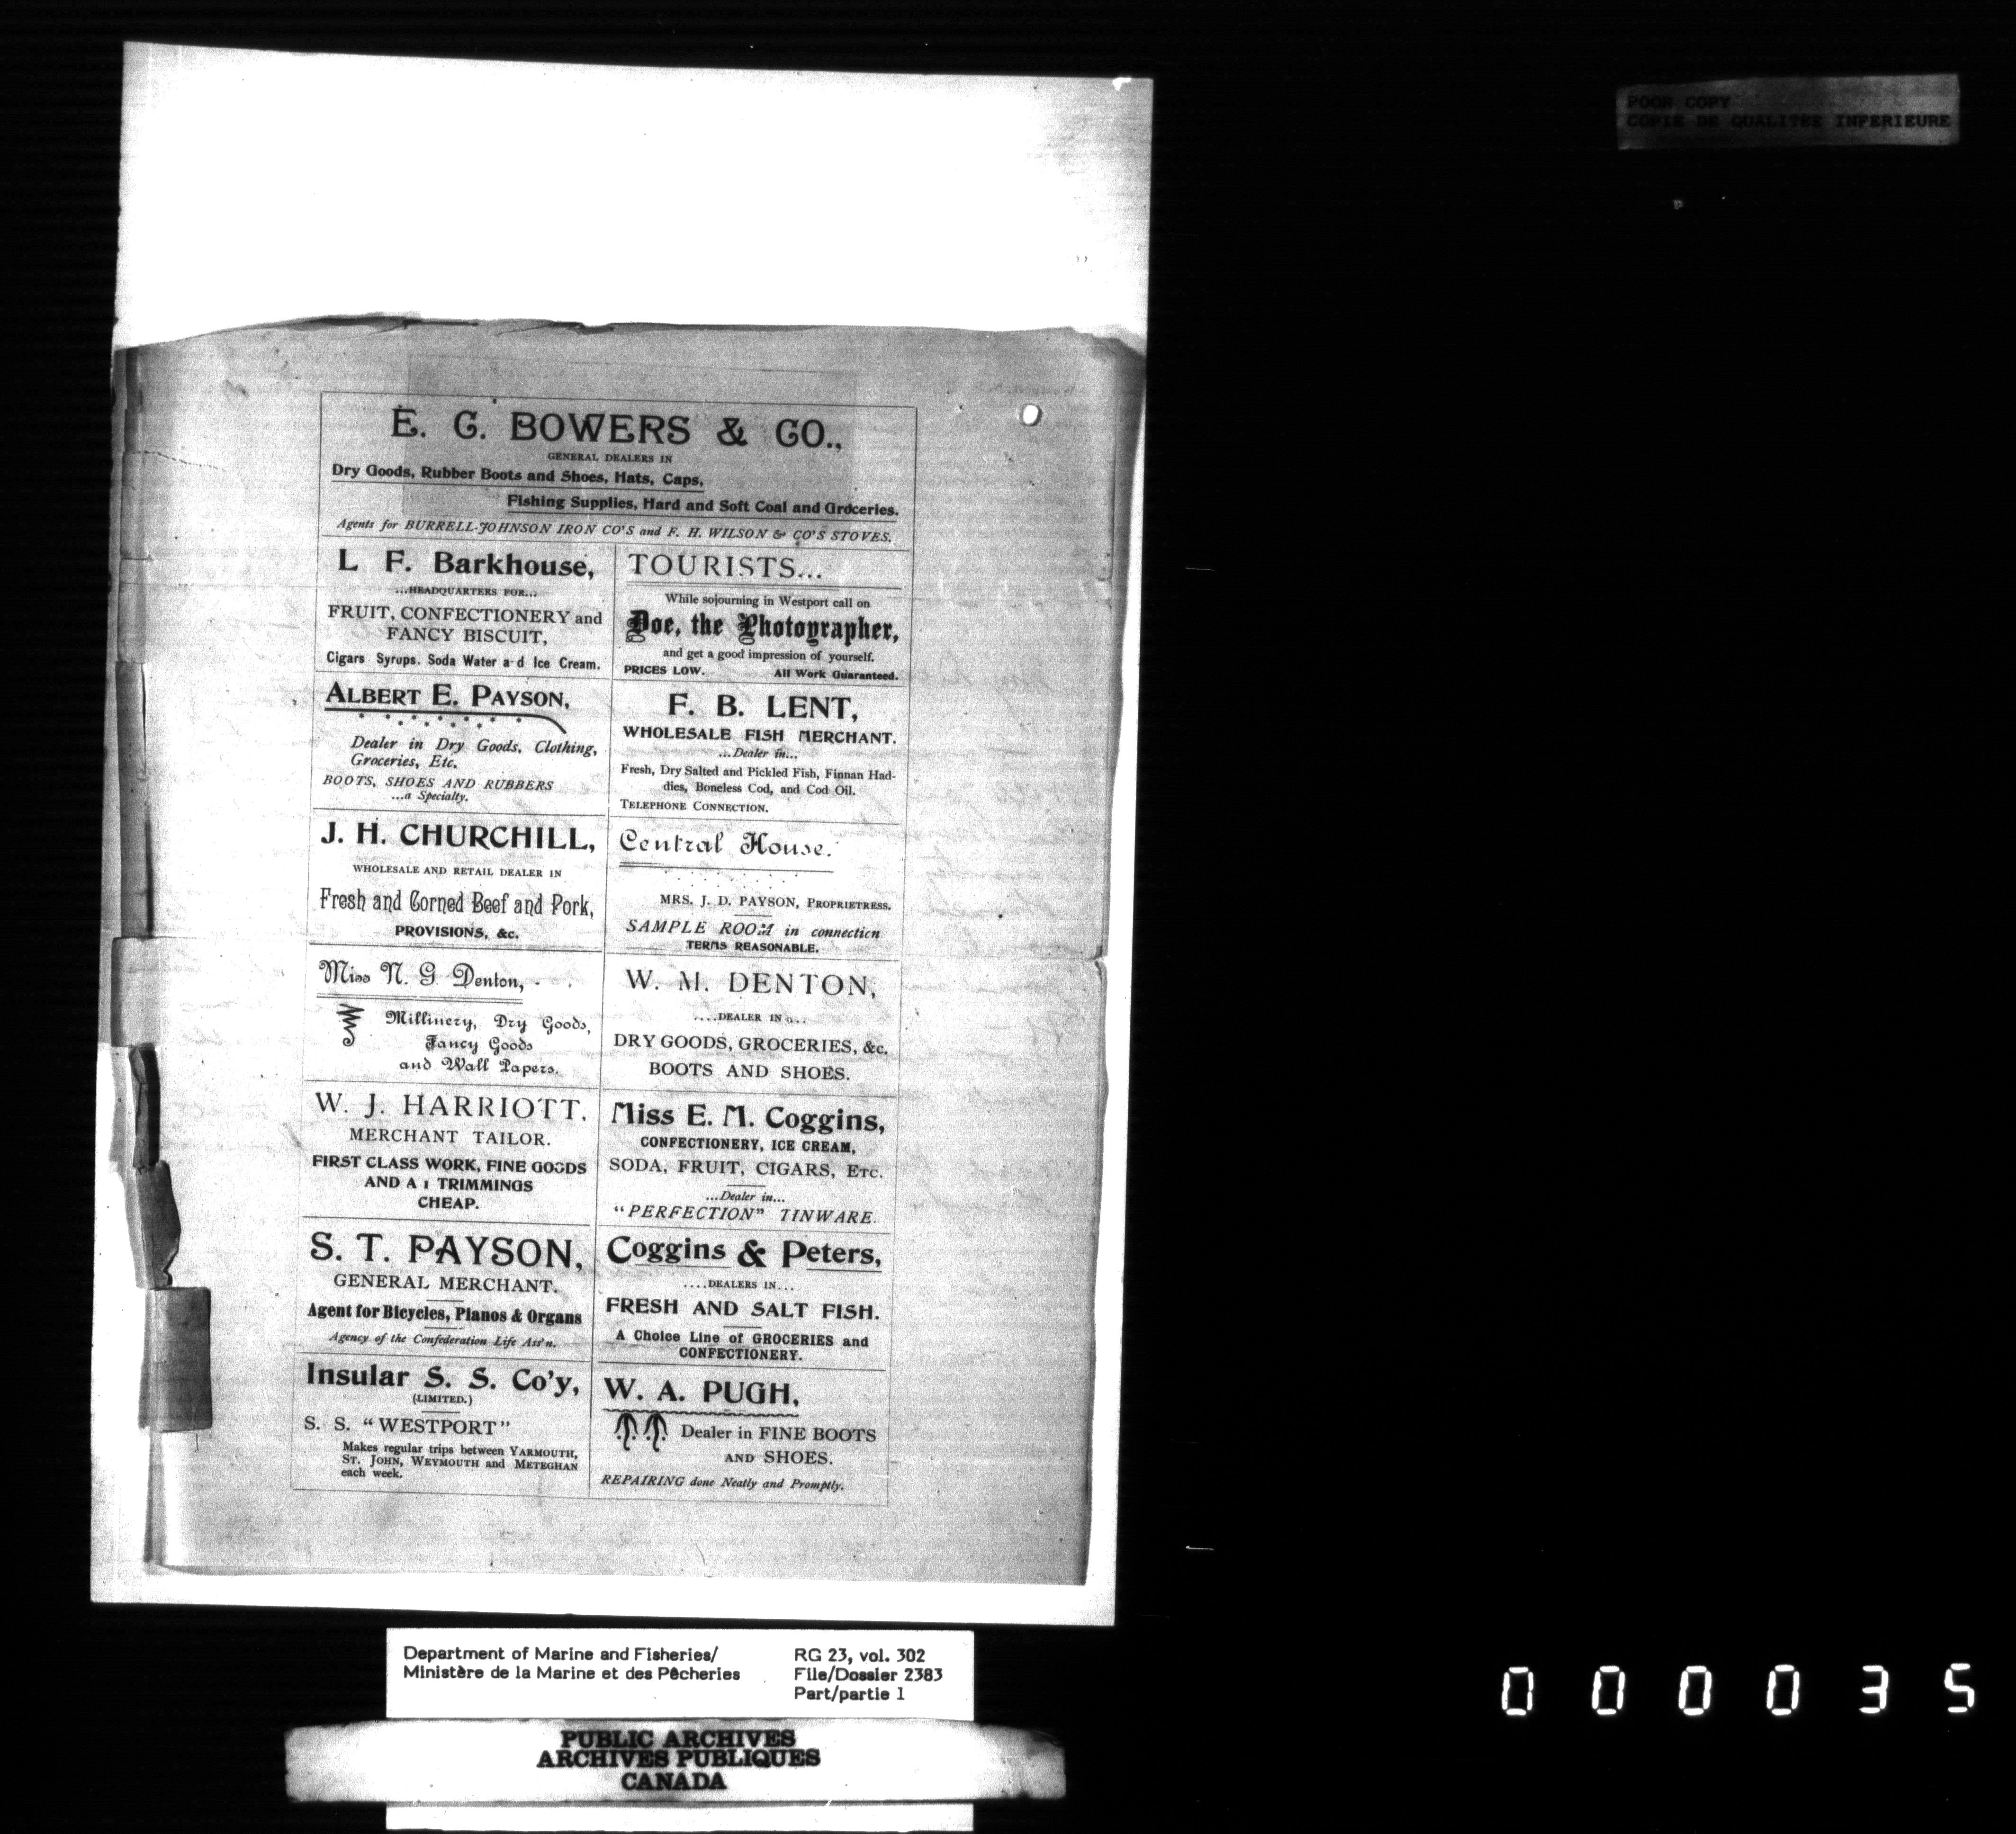 POOR COPY
COPIE DE QUALITEE INFERIEURE
E. C. BOWERS & CO.,
GENERAL DEALERS IN
Dry Goods, Rubber Boots and Shoes, Hats, Caps,
Fishing Supplies, Hard and Soft Coal and Groceries.
Agents for BURRELL-JOHNSON IRON CO'S and F. H. WILSON & CO'S STOVES.
L F. Barkhouse,
...HEADQUARTERS FOR...
FRUIT, CONFECTIONERY and
FANCY BISCUIT,
Cigars Syrups. Soda Water a d Ice Cream.
TOURISTS...
While sojourning in Westport call on
Doe, the Photographer,
and get a good impression of yourself.
PRICES LOW. All Work Guaranteed.
ALBERT E. PAYSON,
Dealer in Dry Goods, Clothing,
Groceries, Etc.
BOOTS, SHOES AND RUBBERS
...a Specialty.
F. B. LENT,
WHOLESALE FISH MERCHANT.
...Dealer in...
Fresh, Dry Salted and Pickled Fish, Finnan Had-
dies, Boneless Cod, and Cod Oil.
TELEPHONE CONNECTION.
J. H. CHURCHILL,
WHOLESALE AND RETAIL DEALER IN
Fresh and Corned Beef and Pork,
PROVISIONS, &c.
Central House.
MRS. J. D. PAYSON, PROPRIETRESS.
SAMPLE ROOM in connection
TERMS REASONABLE.
Miss N. G Denton,
Millinery, Dry Goods,
Fancy Goods
and Wall Papers.
W. M. DENTON,
....DEALER IN...
DRY GOODS, GROCERIES, &c.
BOOTS AND SHOES.
W. J. HARRIOTT.
MERCHANT TAILOR.
FIRST CLASS WORK, FINE GOODS
AND A 1 TRIMMINGS
CHEAP.
Miss E. M. Coggins,
CONFECTIONERY, ICE CREAM,
SODA, FRUIT, CIGARS, ETC.
...Dealer in...
"PERFECTION" TINWARE.
S. T. PAYSON,
GENERAL MERCHANT.
Agent for Bicycles, Pianos & Organs
Agency of the Confederation Life Ass'n.
Coggins & Peters,
....DEALERS IN...
FRESH AND SALT FISH.
A Choice Line of GROCERIES and
CONFECTIONERY.
Insular S. S. Co'y,
(LIMITED.)
S. S. "WESTPORT"
Makes regular trips between YARMOUTH,
ST. JOHN, WEYMOUTH and METEGHAN
each week.
W. A. PUGH,
Dealer in FINE BOOTS
AND SHOES.
REPAIRING done Neatly and Promptly.
Department of Marine and Fisheries/
Ministère de la Marine et des Pêcheries
RG 23, vol. 302
File/Dossier 2383
Part/partie 1
PUBLIC ARCHIVES
ARCHIVES PUBLIQUES
CANADA
000035